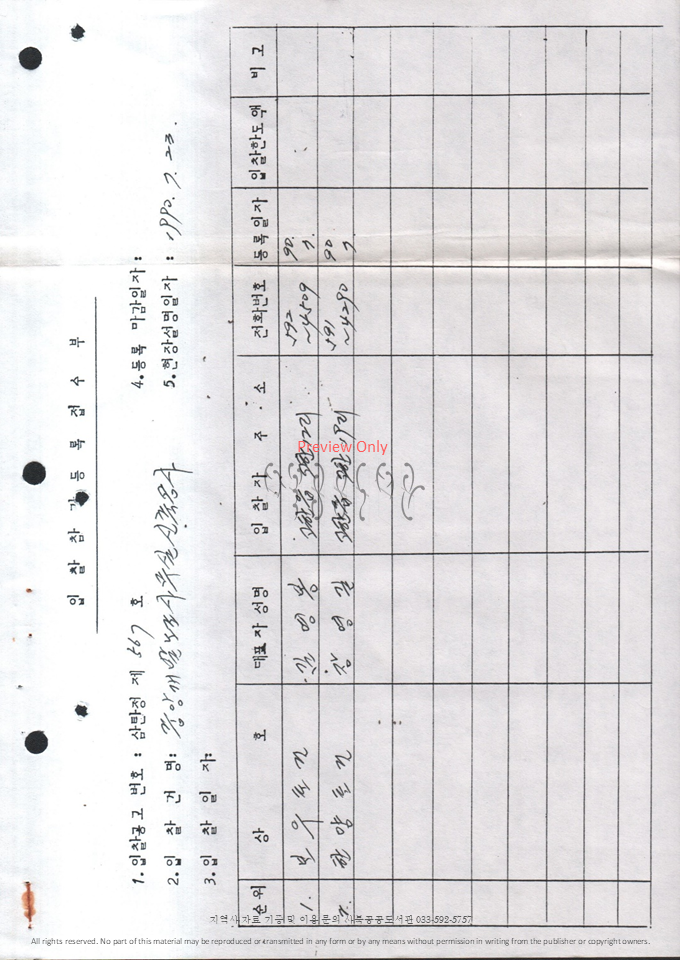 입 찰 참 가 등 록 접 수 부
1. 입찰공고 번호 : 삼탄정 제 567 호
4. 등록 마감일자 :
2. 입 찰 건 명: 중앙개발 사무실 신축공사
5. 현장설명일자 : 1990. 7. 23.
3. 입 찰 일 자:
순위 상 호 대표자 성명 입 찰 자 주 소 전화번호 등록일자 입찰한도액 비 고
1. 보우토건 김영 고한읍 고한 12리 592~4509 90. 7.
2. 한양토건 장영길 고한읍 고한 19리 591~4290 90 7
Preview Only
지역사 자료 기증 및 이용 문의 사북공공도서관 033-592-5757
All rights reserved. No part of this material may be reproduced or transmitted in any form or by any means without permission in writing from the publisher or copyright owners.